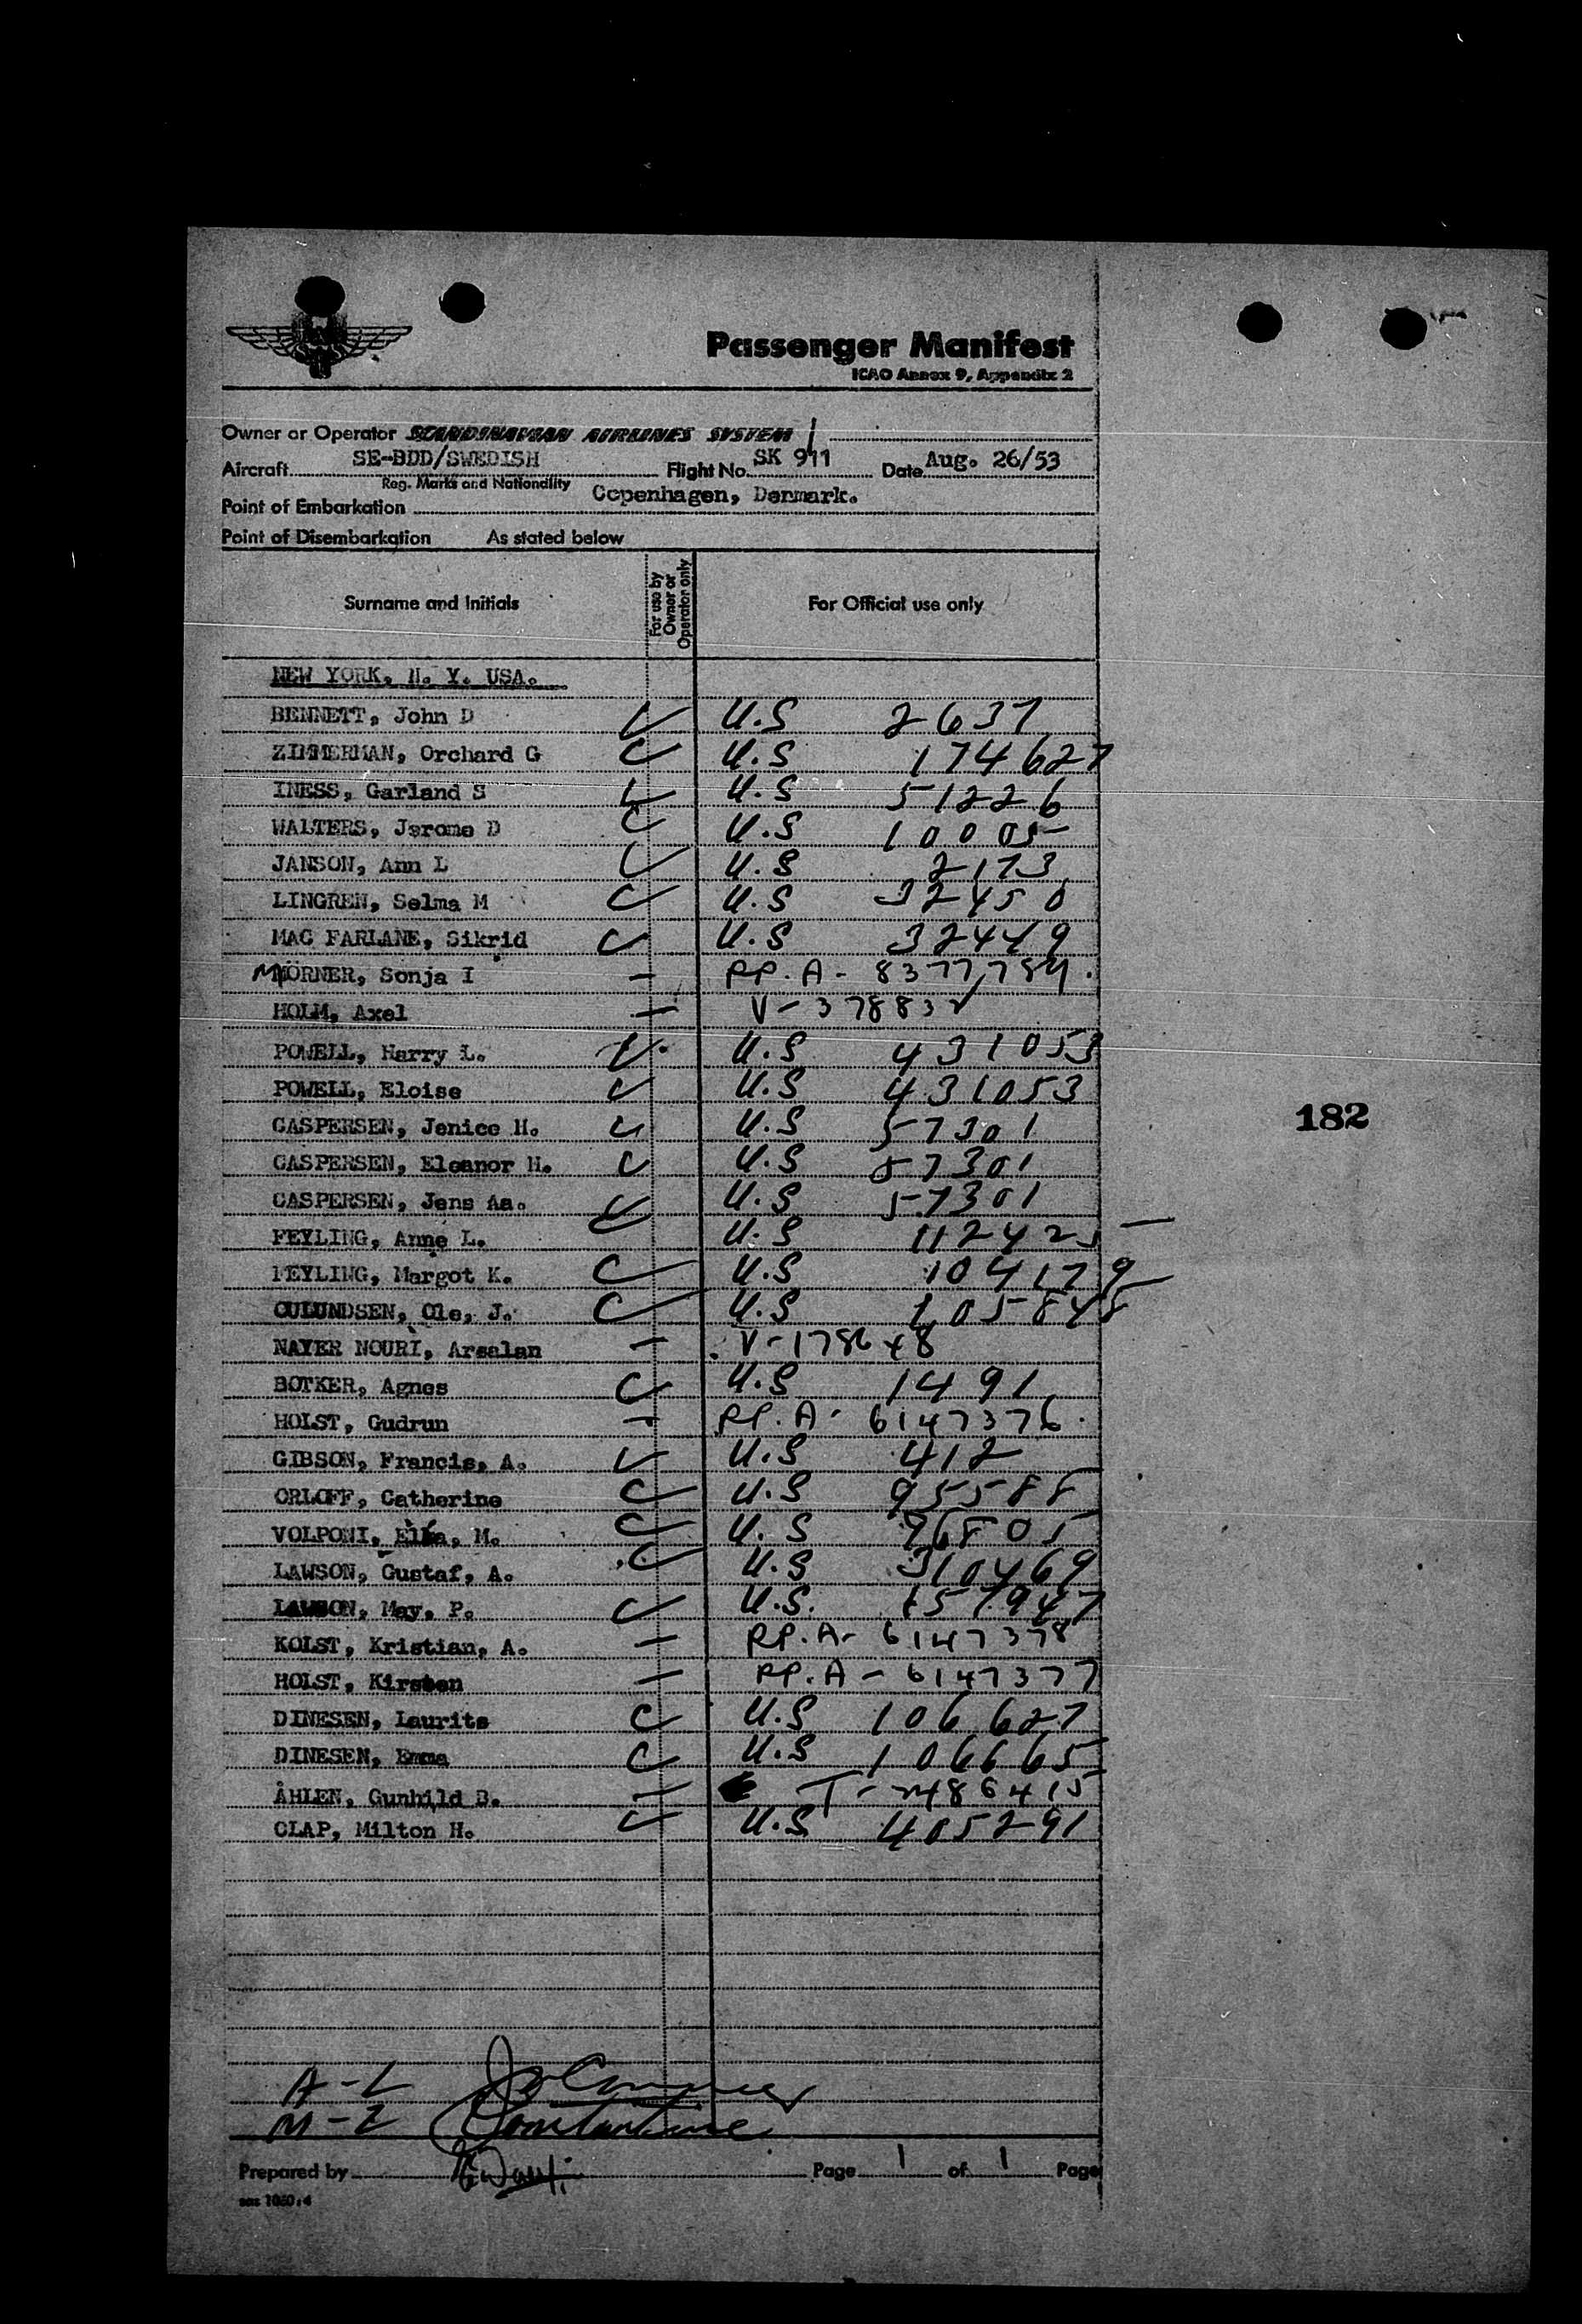 SAS
Passenger Manifest
ICAO Annex 9, Appendix 2
Owner or Operator SCANDINAVIAN AIRLINES SYSTEM
Aircraft SE-BDD/SWEDISH Flight No. SK 911 Date Aug. 26/53
Reg. Marks and Nationality
Point of Embarkation Copenhagen, Denmark.
Point of Disembarkation As stated below
Surname and Initials For use by Owner or Operator only For Official use only
NEW YORK, N. Y. USA.
BENNETT, John D U.S 2637
ZIMMERMAN, Orchard G U.S 174627
INESS, Garland S U.S 51226
WALTERS, Jerome D U.S 10005
JANSON, Ann L U.S 2173
LINGREN, Selma M U.S 32450
MAC FARLANE, Sikrid U.S 32449
MÖRNER, Sonja I RP.A- 8377784.
HOLM, Axel V-378832
POWELL, Harry L. U.S 431053
POWELL, Eloise U.S 431053
CASPERSEN, Jenice H. U.S 57301
CASPERSEN, Eleanor H. U.S 57301
CASPERSEN, Jens Aa. U.S 57301
FEYLING, Anne L. U.S 112425
FEYLING, Margot K. U.S 104179
OULUNDSEN, Ole, J. U.S 105848
NAYER NOURI, Arsalan V-178648
BOTKER, Agnes U.S 1491
HOLST, Gudrun RP.A- 6147376.
GIBSON, Francis, A. U.S 412
ORLOFF, Catherine U.S 95588
VOLPONI, M. U.S
LAWSON, Gustaf, A. U.S 310469
LAWSON, May, P. U.S. 157947
KOLST, Kristian, A. RP.A- 6147378
HOLST, Kirsten RP.A- 6147377
DINESEN, Laurits U.S 106627
DINESEN, Emma U.S 106665
ÅHLEN, Gunhild B. T-2486415
CLAP, Milton H. U.S 405291
182
A-L
M-Z Constantine
Prepared by Page 1 of 1 Page
sas 1050:4